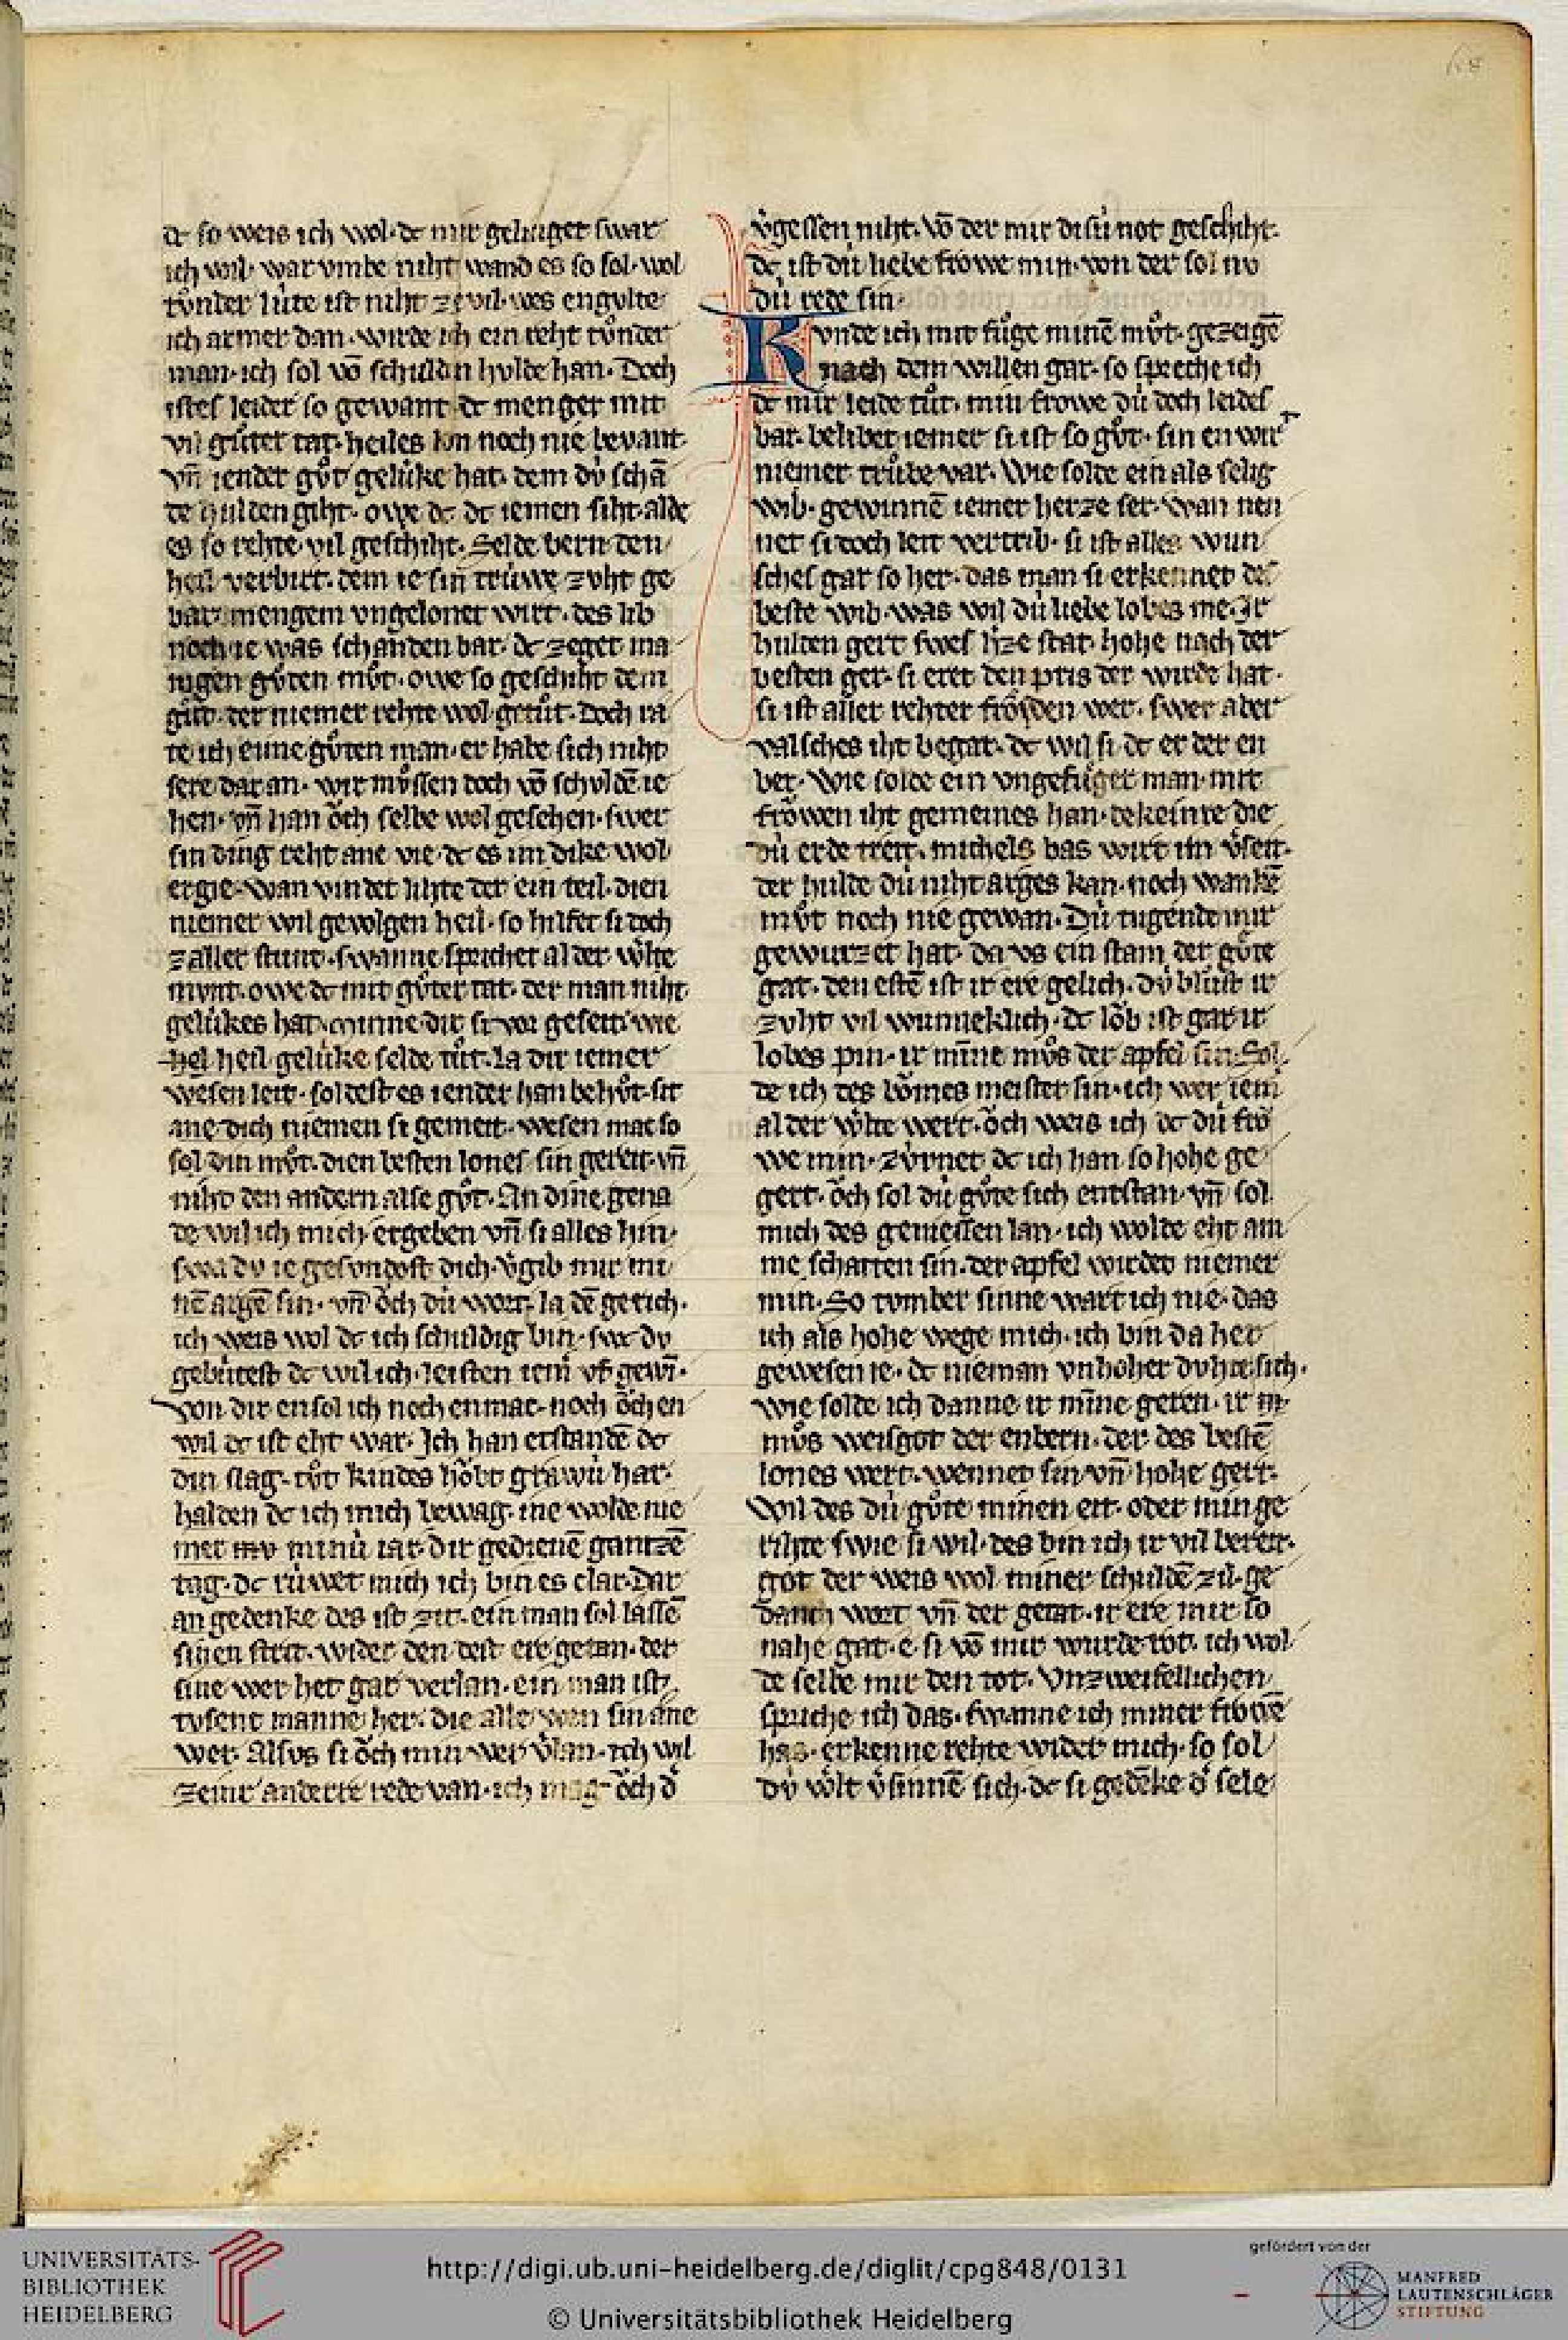 68
dc so weis ich wol·dc mir gelinget swar
ich wil· war vmbe niht wand es so sol·wol
tůnder lúte ist niht ze vil·wes engvlte
ich armer dan·wirde ich ein reht tůnder
man·ich sol võ schulden hvlde han· Doch
istes leider so gewant dc menger mit
vil gůter tat· heiles lon noch nie bevant·
vñ iender gůt gelúke hat· dem dv́ schã
de hulden giht· owe dc dc iemen siht·alde
es so rehte vil geschiht· Selde bern den
heil verbirt· dem ie sin trúwe zvht ge
bar·mengem vngelonet wirt·des lib
noch ie was schanden bar· dc zeget ma
nigen gůten můt·owe so geschiht dem
gůt·der niemer rehte wol getůt· Doch ra
te ich eime gůten man·er habe sich niht
sere dar an· wir můssen doch võ schvldẽ ie
hen·vñ han ŏch selbe wol gesehen·swer
sin ding reht ane vie·dc es im dike wol
ergie·wan vindet lihte der ein teil·dien
niemer wil gevolgen heil·so hilfet si doch
zaller stunt·swanne sprichet al der welte
mvnt·owe dc mit gůter tat· der man niht
gelúkes hat·minne dir si vor geseit·wie
hel heil gelúke selde tůt·la dir iemer
wesen leit·soldest es iender han behůt·sit
ane dich niemen si gemeit·wesen mac so
sol din můt·dien besten lones sin gereit·vñ
niht den andern alse gůt· An dine gena
de wil ich mich ergeben vñ si alles hin·
swa dv ie gesvndost dich·v̉gib mir mi
nẽ argẽ sin·vñ ŏch dú wort·la dẽ gerich·
ich weis wol dc ich schuldig bin·swc dv
gebútest dc wil ich·leisten iem̉ vf gewĩ·
von dir ensol ich noch enmac·noch ŏch en
wil dc ist eht war· Ich han erstandẽ dc
din slag·tůt kindes hŏbt grawú har·
halden dc ich mich bewag·ine wolde nie
mer minú iar·dir gedienẽ gantzẽ
tag·dc rúwet mich ich bin es clar· Dar
an gedenke des ist zit·ein man sol lassẽ
sinen strit·wider den dest ere getan·der
sine wer het gar verlan·ein man ist
tvsent manne her·die alle wen sin ane
wer· Alsvs si ŏch min wer v̉lan·ich wil
zeinr anderre rede van·ich mag ŏch d̉
v̉gessen niht·võ der mir disú not geschiht·
dc ist dú liebe frŏwe min·von der sol nv
dú rede sin·
Konde ich mit fůge minẽ můt·gezeigẽ
nach dem willen gar·so spreche ich
dc mir leide tůt·min frowe dú doch leides
bar·belibet iemer si ist so gůt·sin en wirt
niemer trůbe var· Wie solde ein als selig
wib·gewinnẽ iemer herze ser·wan nen
net si doch leit vertrib·si ist alles wun
sches gar so her·das man si erkennet dc
beste wib·was wil dú liebe lobes me· Ir
hulden gert swes h̉ze stat·hohe nach der
besten ger·si eret den pris der wirde hat·
si ist aller rehter frŏiden wer·swer aber
valsches iht begat·dc wil si dc er der en
ber· Wie solde ein vngefůger man·mit
frŏwen iht gemeines han·dekeinre die
dú erde treit·michels bas wirt im v̉seit·
der hulde dú niht arges kan·noch wankẽ
můt noch nie gewan· Dú tugende mit
gewurzet hat·da vs ein stam der gůte
gat·den estẽ ist ir ere gelich·dv́ blůst ir
zvht vil wunneklich·dc lŏb ist gar ir
lobes pin·ir mĩne můs der apfel sin· Sol
de ich des bŏmes meister sin·ich wer iem̉
al der welte wert·ŏch weis ich dc dú frŏ
we min·zv́rnet dc ich han so hohe ge
gert·ŏch sol dú gůte sich entstan·vñ sol
mich des geniessen lan·ich wolde eht am
me schatten sin·der apfel wirdet niemer
min· So tvmber sinne wart ich nie·das
ich als hohe wege mich·ich bin da her
gewesen ie·dc nieman vnhoher dvhte sich·
wie solde ich danne ir mĩne geren·ir m
můs weisgot der enbern·der des bestẽ
lones wert·wennet sin vñ hohe gert·
Wil des dú gůte minen eit·oder min ge
rihte swie si wil·des bin ich ir vil bereit·
got der weis wol miner schuldẽ zil·ge
danch wort vñ der getat·ir ere mir so
nahe gat·e·si võ mir wurde rot·ich wol
de selbe mir den tot· Vnzweifellichen
spriche ich das·swanne ich miner frowẽ
has·erkenne rehte wider mich·so sol
dv́ welt v̉sinnẽ sich·dc si gedẽke d̉ sele
UNIVERSITÄTS-
BIBLIOTHEK
HEIDELBERG
http://digi.ub.uni-heidelberg.de/diglit/cpg848/0131
© Universitätsbibliothek Heidelberg
gefördert von der
MANFRED
LAUTENSCHLÄGER
STIFTUNG